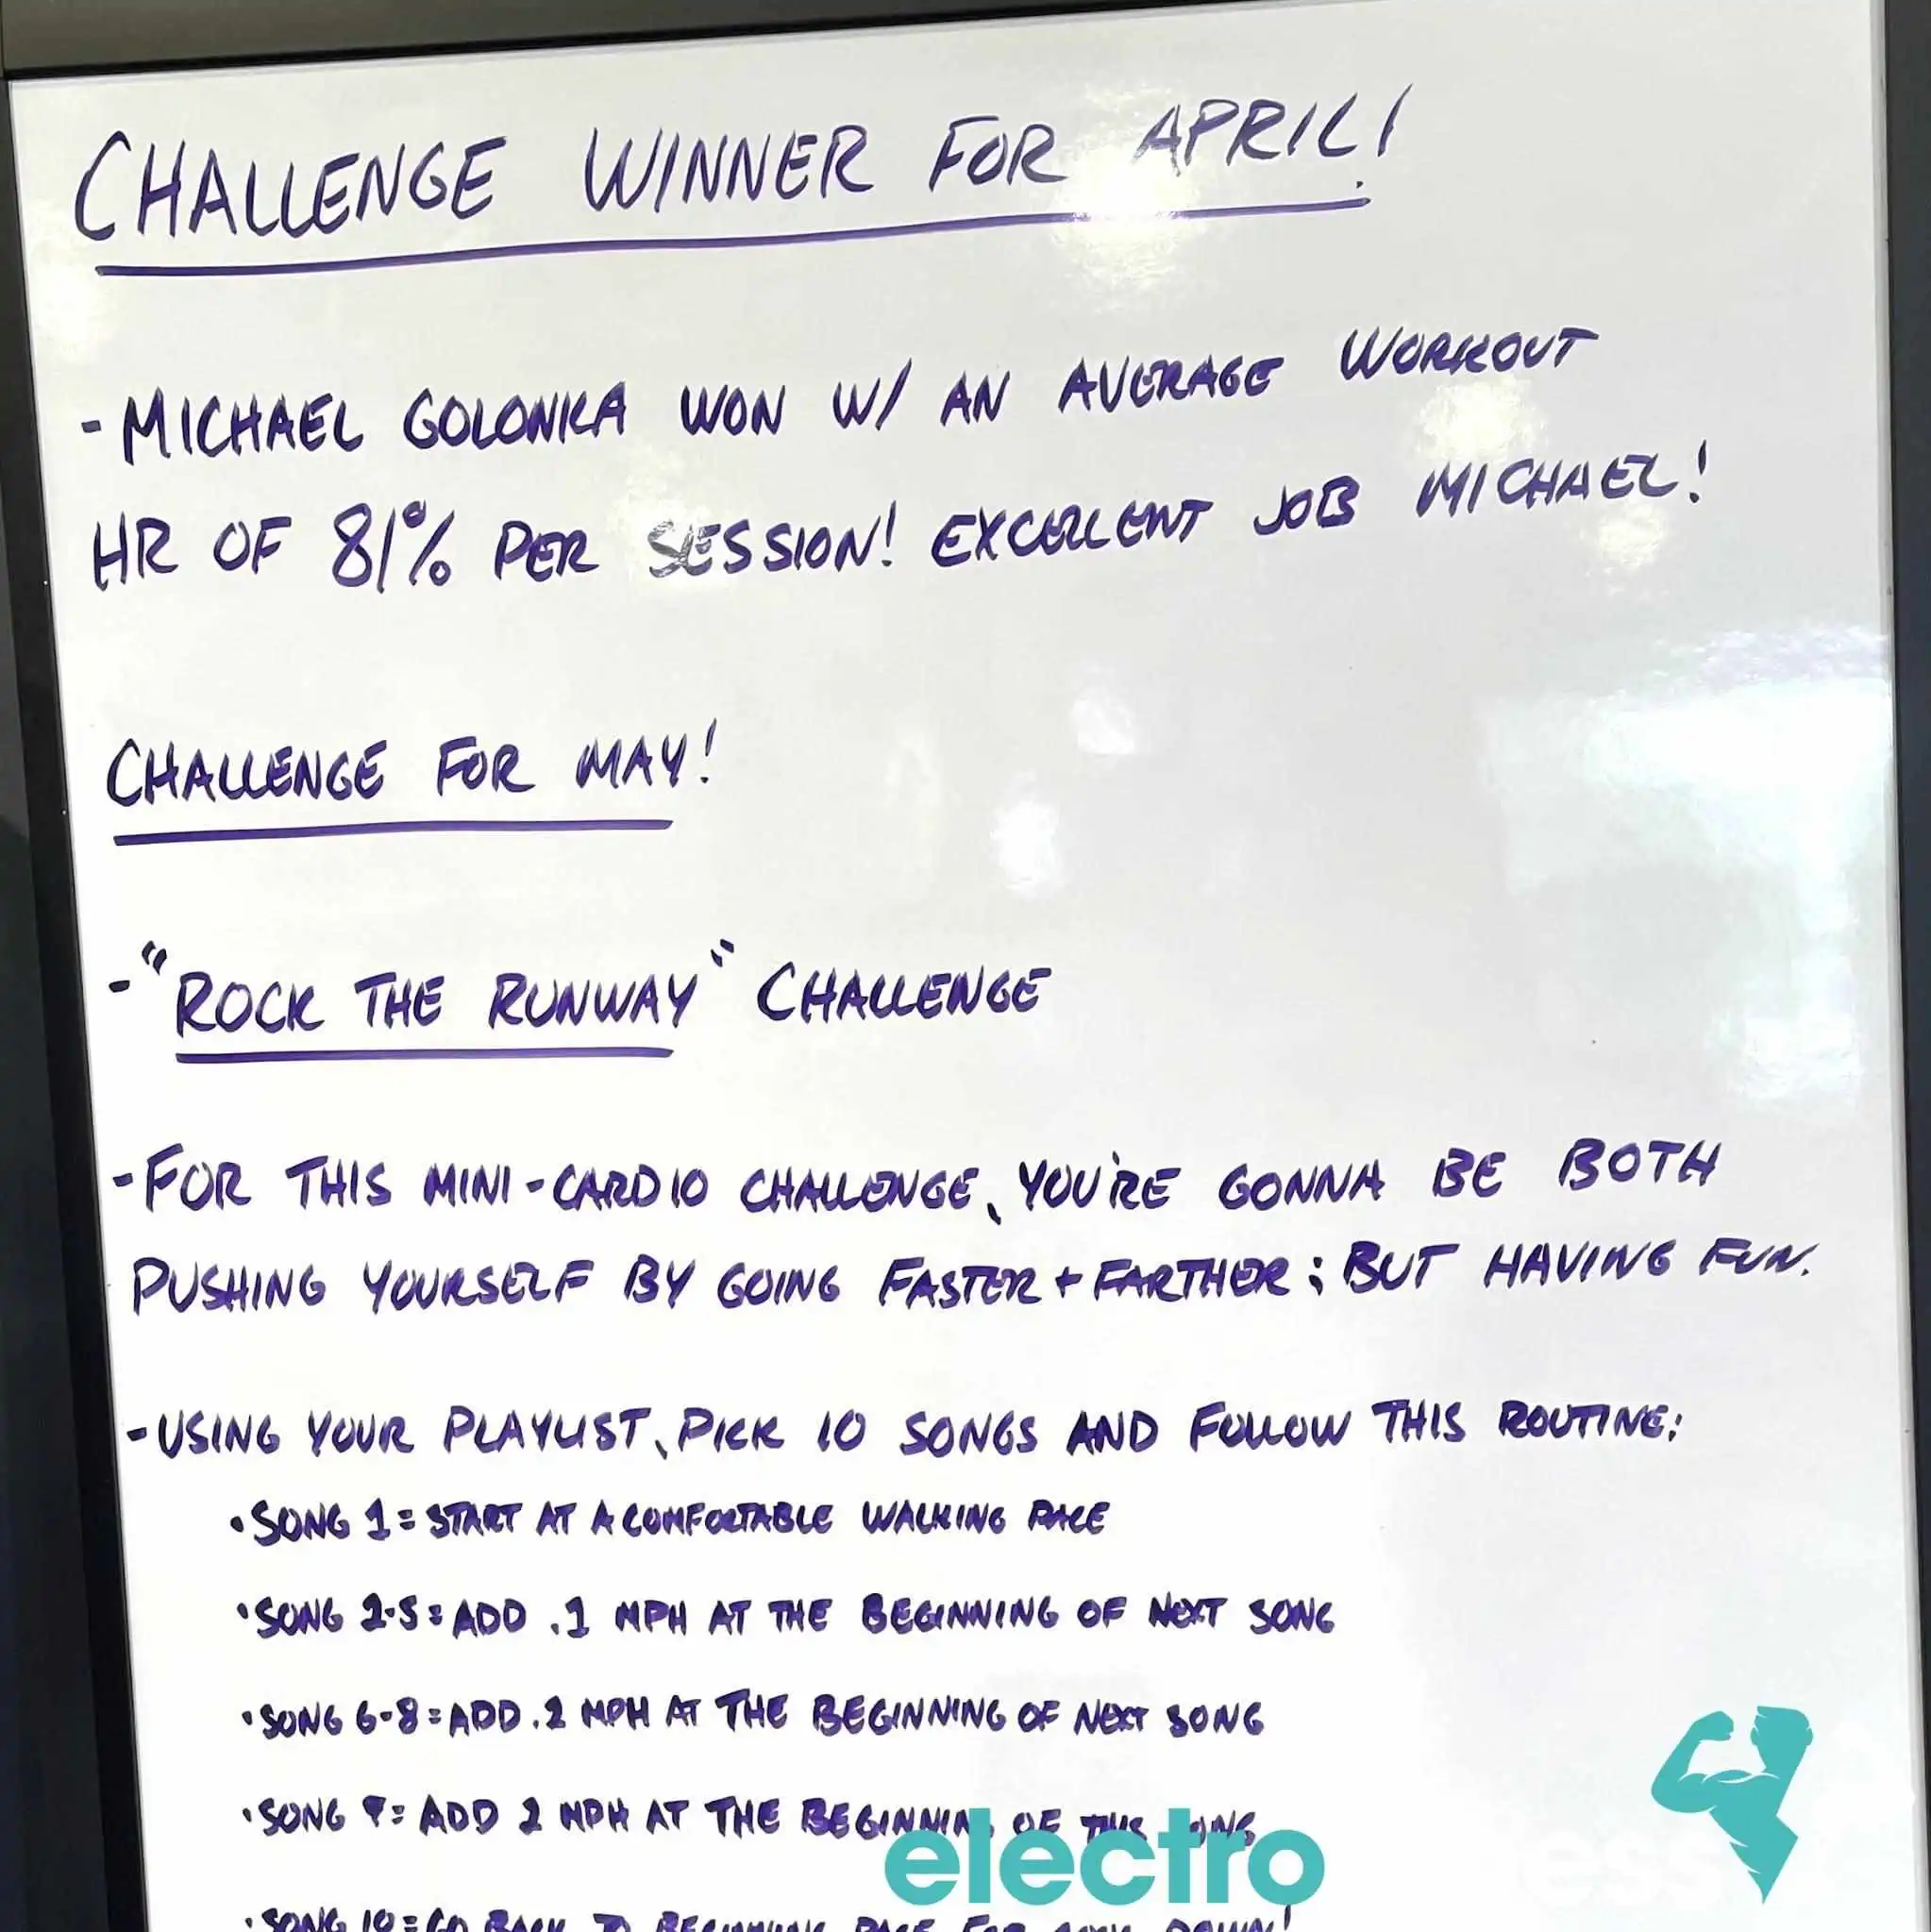 CHALLENGE WINNER FOR APRIL!
- MICHAEL GOLONKA WON W/ AN AVERAGE WORKOUT
HR OF 81% PER SESSION! EXCELLENT JOB MICHAEL!
CHALLENGE FOR MAY!
- "ROCK THE RUNWAY" CHALLENGE
- FOR THIS MINI-CARDIO CHALLENGE, YOU'RE GONNA BE BOTH
PUSHING YOURSELF BY GOING FASTER + FARTHER; BUT HAVING FUN.
- USING YOUR PLAYLIST, PICK 10 SONGS AND FOLLOW THIS ROUTINE:
• SONG 1 = START AT A COMFORTABLE WALKING PACE
• SONG 2-5 = ADD .1 MPH AT THE BEGINNING OF NEXT SONG
• SONG 6-8 = ADD .2 MPH AT THE BEGINNING OF NEXT SONG
• SONG 9 = ADD 2 MPH AT THE BEGINNING OF THIS SONG
• SONG 10 = GO BACK TO BEGINNING PACE FOR COOL DOWN!
electro